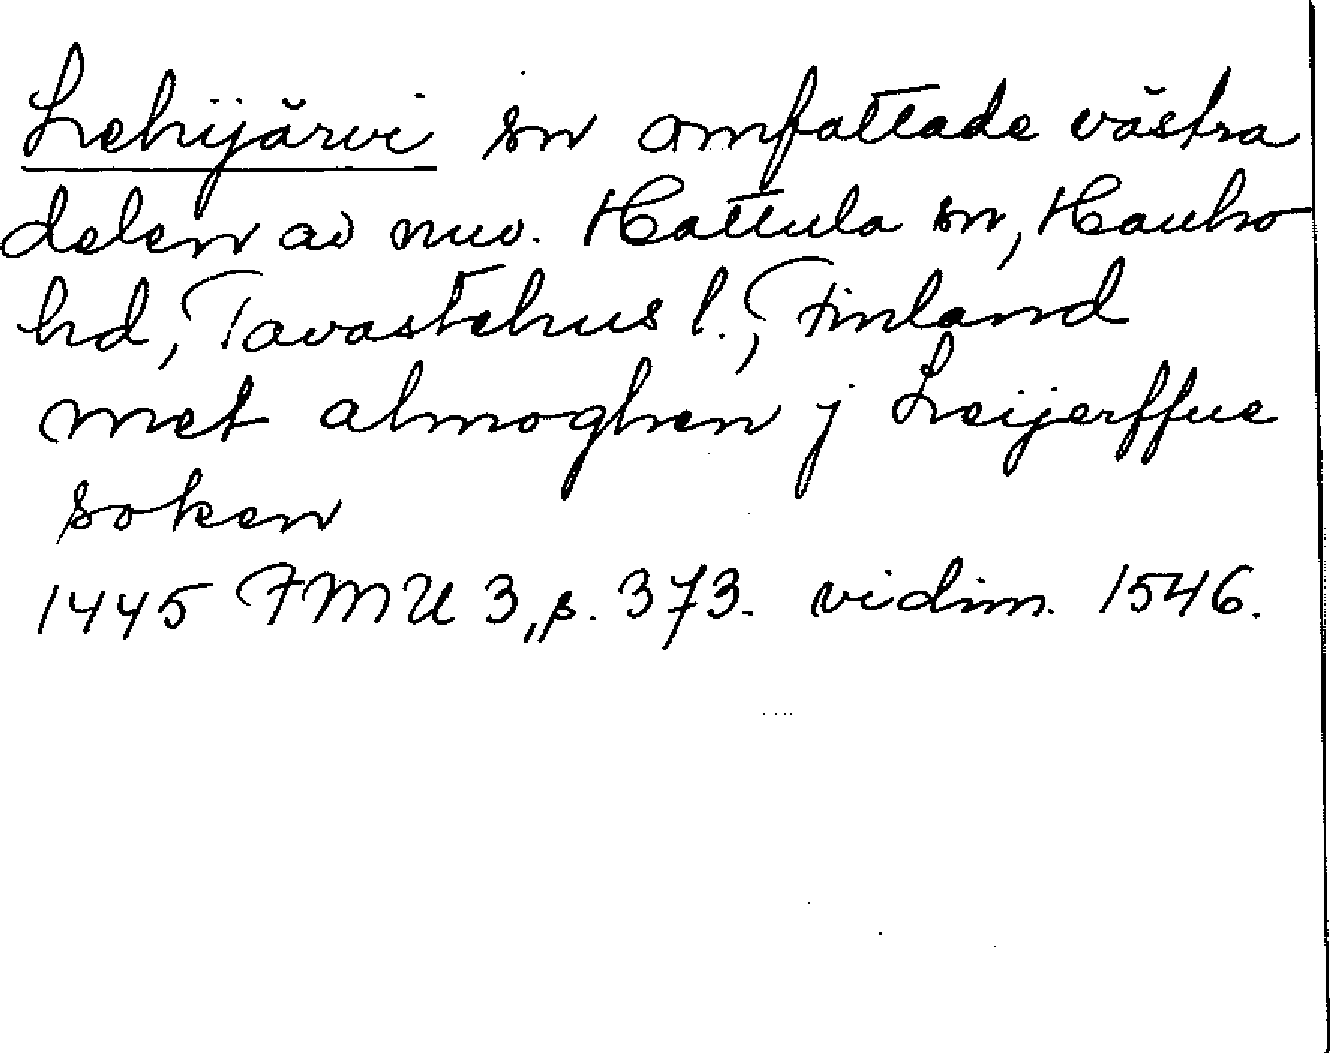 Lehijärvi sn omfattade västra
delen av nuv. Hattula sn, Hauho
hd, Tavastehus l., Finland
met almoghen j Leijerffue
soken
1445 FMU 3, p. 373. vidim. 1546.